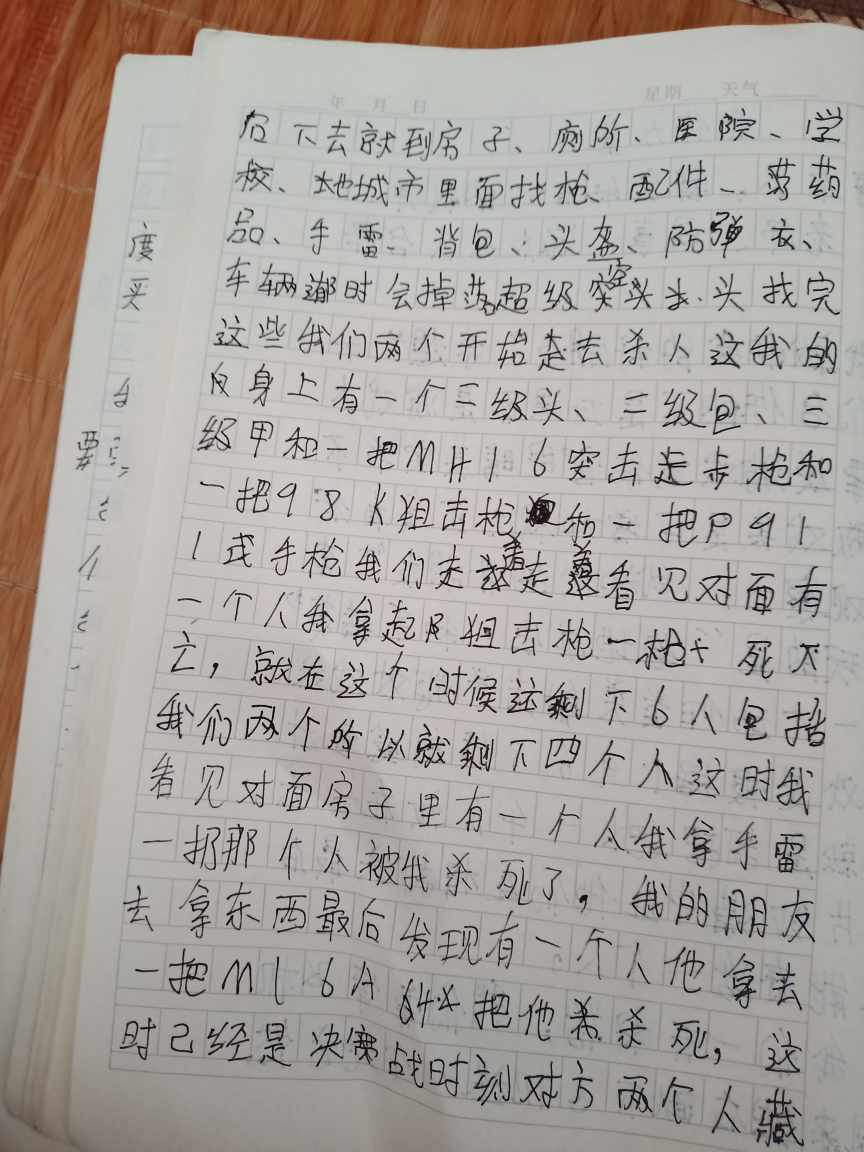 年 月 日 星期 天气
后下去就到房子、厕所、医院、学
校、地城市里面找枪、配件、药
品、手雷、背包、头盔、防弹衣、
车辆这时会掉落超级空头、头找完
这些我们两个开始走去杀人这我的
身上有一个三级头、三级包、三
级甲和一把M416突击走步枪和
一把98K狙击枪和一把P91
1式手枪我们走着走着看见对面有
一个人我拿起狙击枪一枪死
亡，就在这个时候还剩下6人包括
我们两个所以就剩下四个人这时我
看见对面房子里有一个人我拿手雷
一扔那个人被我杀死了，我的朋友
去拿东西最后发现有一个人他拿去
一把M16A4把他杀死，这
时己经是决赛战时刻对方两个人藏
度
买